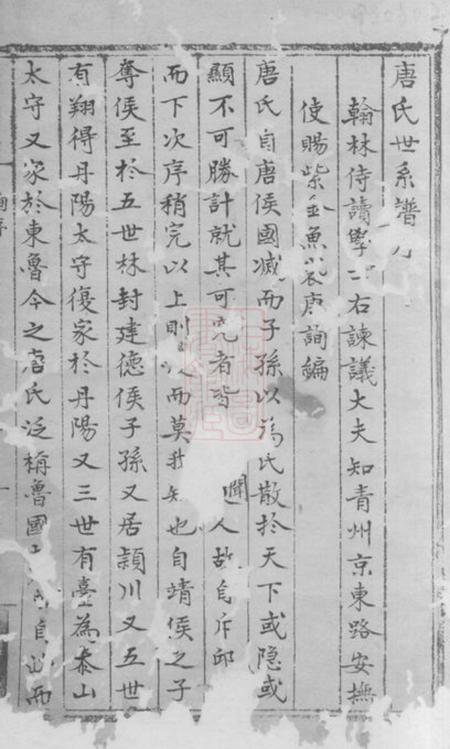 唐氏世系譜
翰林侍讀學 右諫議大夫知青州京東路安撫
使賜紫金魚袋唐詢編
唐氏自唐侯國滅而子孫以為氏散於天下或隱或
顯不可勝計就其可究者皆 聞人故自斥邱
而下次序稍完以上則 而莫 知也自靖侯之子
奪侯至於五世林封建德侯子孫又居潁川又五世
有翔得丹陽太守復家於丹陽又三世有臺為泰山
太守又家於東魯今之唐氏泛稱魯國 自 而